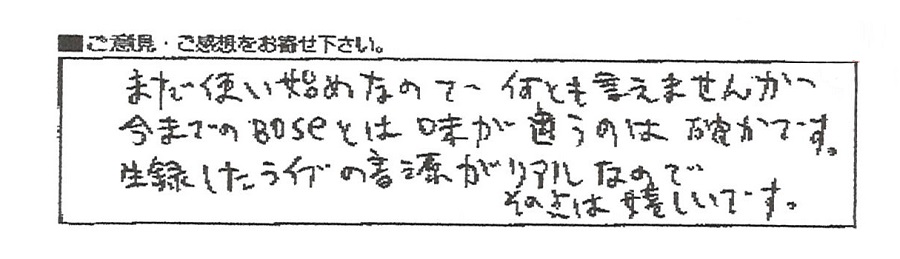 ■ご意見・ご感想をお寄せ下さい。
まだ使い始めなので何とも言えませんが
今までのBOSEとは味が違うのは確かです。
生録したライブの音源がリアルなので
その点は嬉しいです。